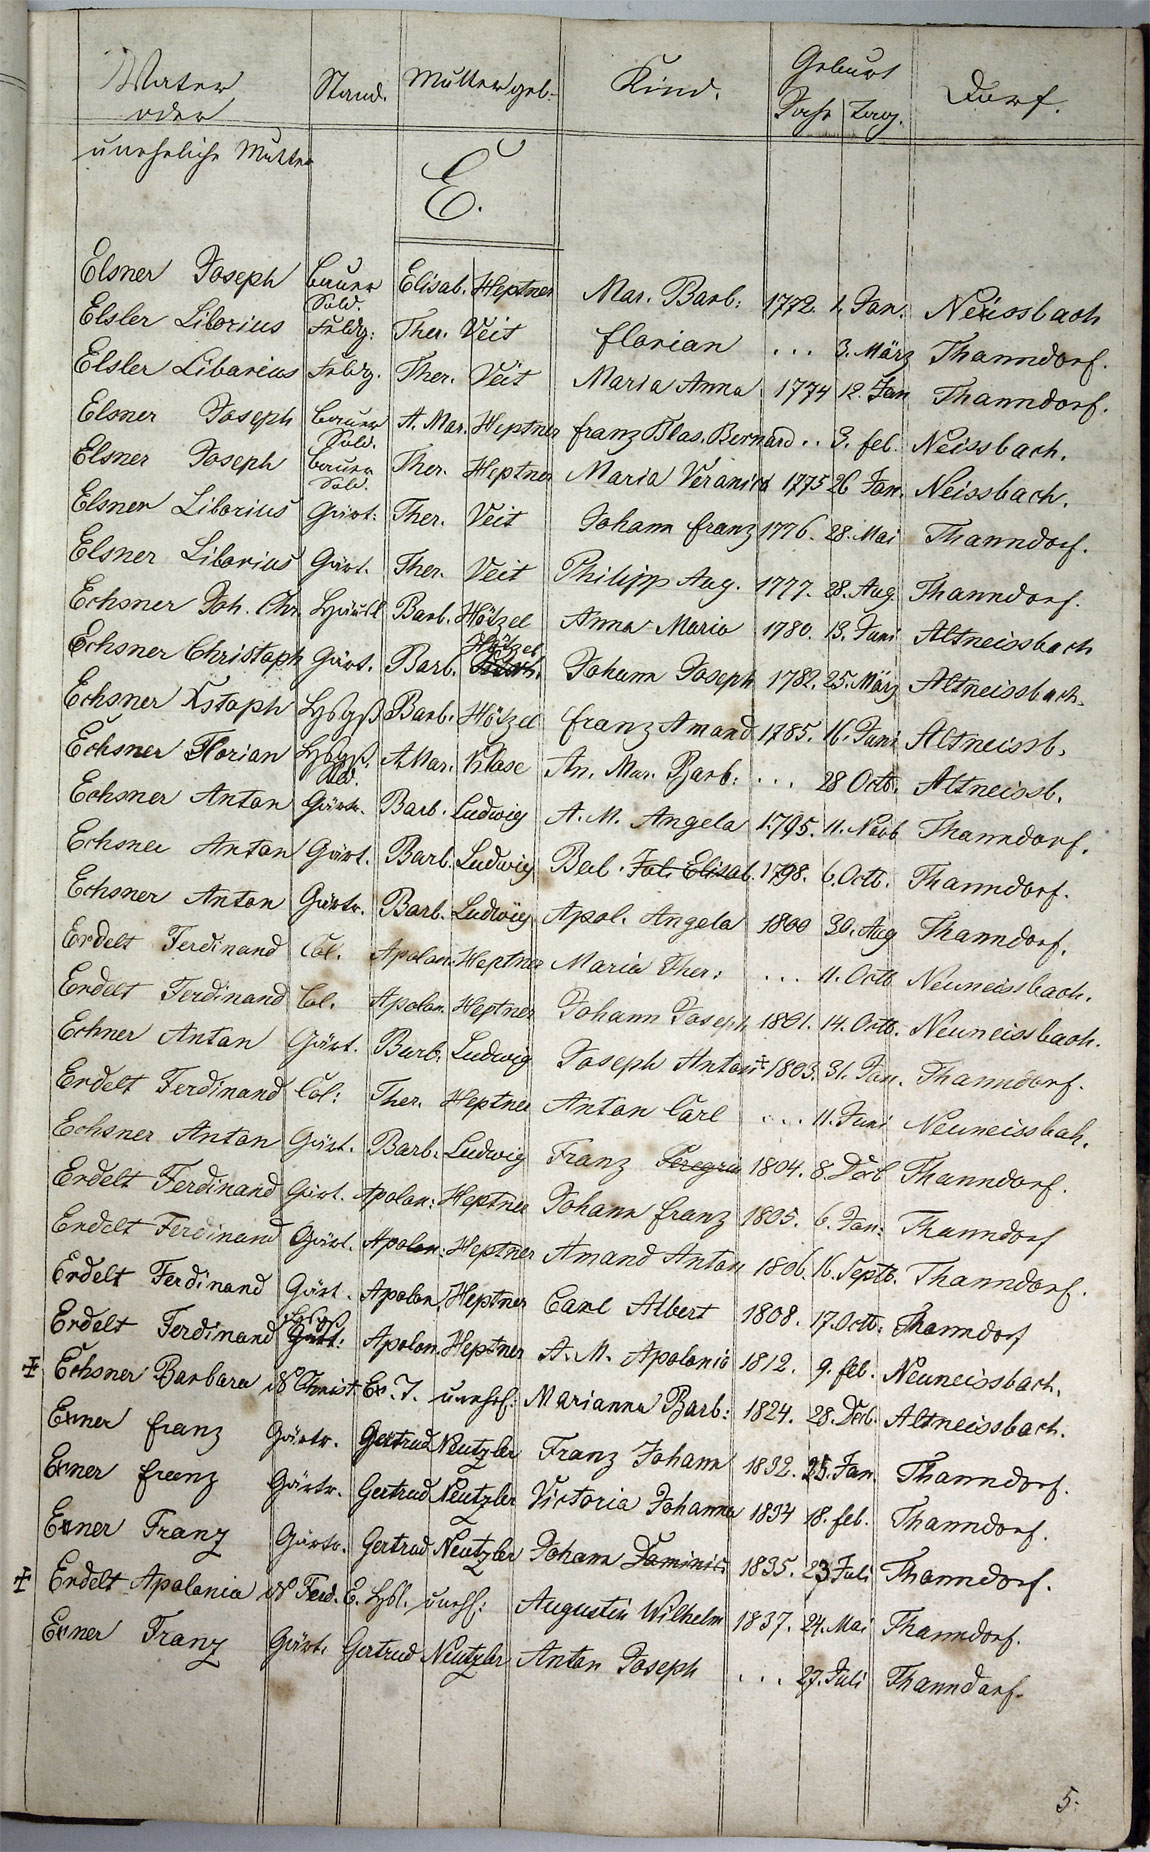 Vater Stand. Mutter geb. Kind. Geburt Dorf.
oder Jahr Tag.
uneheliche Mutter
E.
Elsner Joseph Bauer Elisab. Heptner Mar. Barb: 1772. 1. Jan. Neissbach
Elsler Liborius Feldg: Ther. Veit Florian ... 3. März Thanndorf.
Elsler Liborius Feldg. Ther. Veit Maria Anna 1774 12. Jan Thanndorf.
Elsner Joseph Bauer A. Mar. Heptner Franz Blas. Bernard .. 3. Feb. Neissbach.
Elsner Joseph Bauer Ther. Heptner Maria Veronica 1775 26 Jan. Neissbach.
Elsner Liborius Gärt. Ther. Veit Johann Franz 1776. 28. Mai Thanndorf.
Elsner Liborius Gärt. Ther. Veit Philipp Aug. 1777. 28. Aug Thanndorf.
Echsner Joh. Chr. Häusl Barb. Hötzel Anna Maria 1780. 13. Juni Altneissbach
Echsner Christoph Gärt. Barb. Hötzel Johann Joseph 1782. 25. März Altneissbach.
Echsner Xstoph Barb. Hötzel Franz Amand 1785. 16. Juni Altneissb.
Echsner Florian A Mar. Klose An. Mar. Barb: ... 28 Octb. Altneissb.
Echsner Anton Gärtn. Barb. Ludwig A. M. Angela 1795. 11. Novb Thanndorf.
Echsner Anton Gärt. Barb. Ludwig Jul. Elisab. 1798. 6. Octb. Thanndorf.
Echsner Anton Gärtn. Barb. Ludwig Apol. Angela 1800 30. Aug Thanndorf.
Erdelt Ferdinand Col. Apolon. Heptner Maria Ther: ... 11. Octb Neuneissbach.
Erdelt Ferdinand Col. Apolon. Heptner Johann Joseph 1801. 14. Octb. Neuneissbach.
Echner Anton Gärt. Barb. Ludwig Joseph Anton 1803. 31. Jan. Thanndorf.
Erdelt Ferdinand Col: Ther. Heptner Anton Carl ... 11. Juni Neuneissbah.
Echsner Anton Gärt. Barb. Ludwig Franz Peregrin 1804. 8. Dcb Thanndorf.
Erdelt Ferdinand Gärt. Apolon: Heptner Johann Franz 1805. 6. Jan: Thanndorf
Erdelt Ferdinand Gärt. Apolon: Heptner Amand Anton 1806. 16. Septb. Thanndorf.
Erdelt Ferdinand Gärt. Apolon. Heptner Carl Albert 1808. 17. Octb. Thanndorf
Erdelt Ferdinand Gärt: Apolon. Heptner A. M. Apolonia 1812. 9. Feb. Neuneissbach.
Echsner Barbara Christ. Ex. T. unehl: Marianna Barb: 1824. 28. Dcb. Altneissbach.
Exner Franz Gärtn. Gertrud Neutzler Franz Johann 1832. 25. Jan. Thanndorf.
Exner Franz Gärtn. Gertrud Neutzler Victoria Johanna 1834 18. Feb. Thanndorf.
Exner Franz Gärtn. Gertrud Neutzler Johann Dominic 1835. 23 Juli Thanndorf.
Erdelt Apolonia Ferd. E. unehl: Augustin Wilhelm 1837. 24. Mai Thanndorf.
Exner Franz Gärt. Gertrud Neutzler Anton Joseph ... 27. Juli Thanndorf.
5.